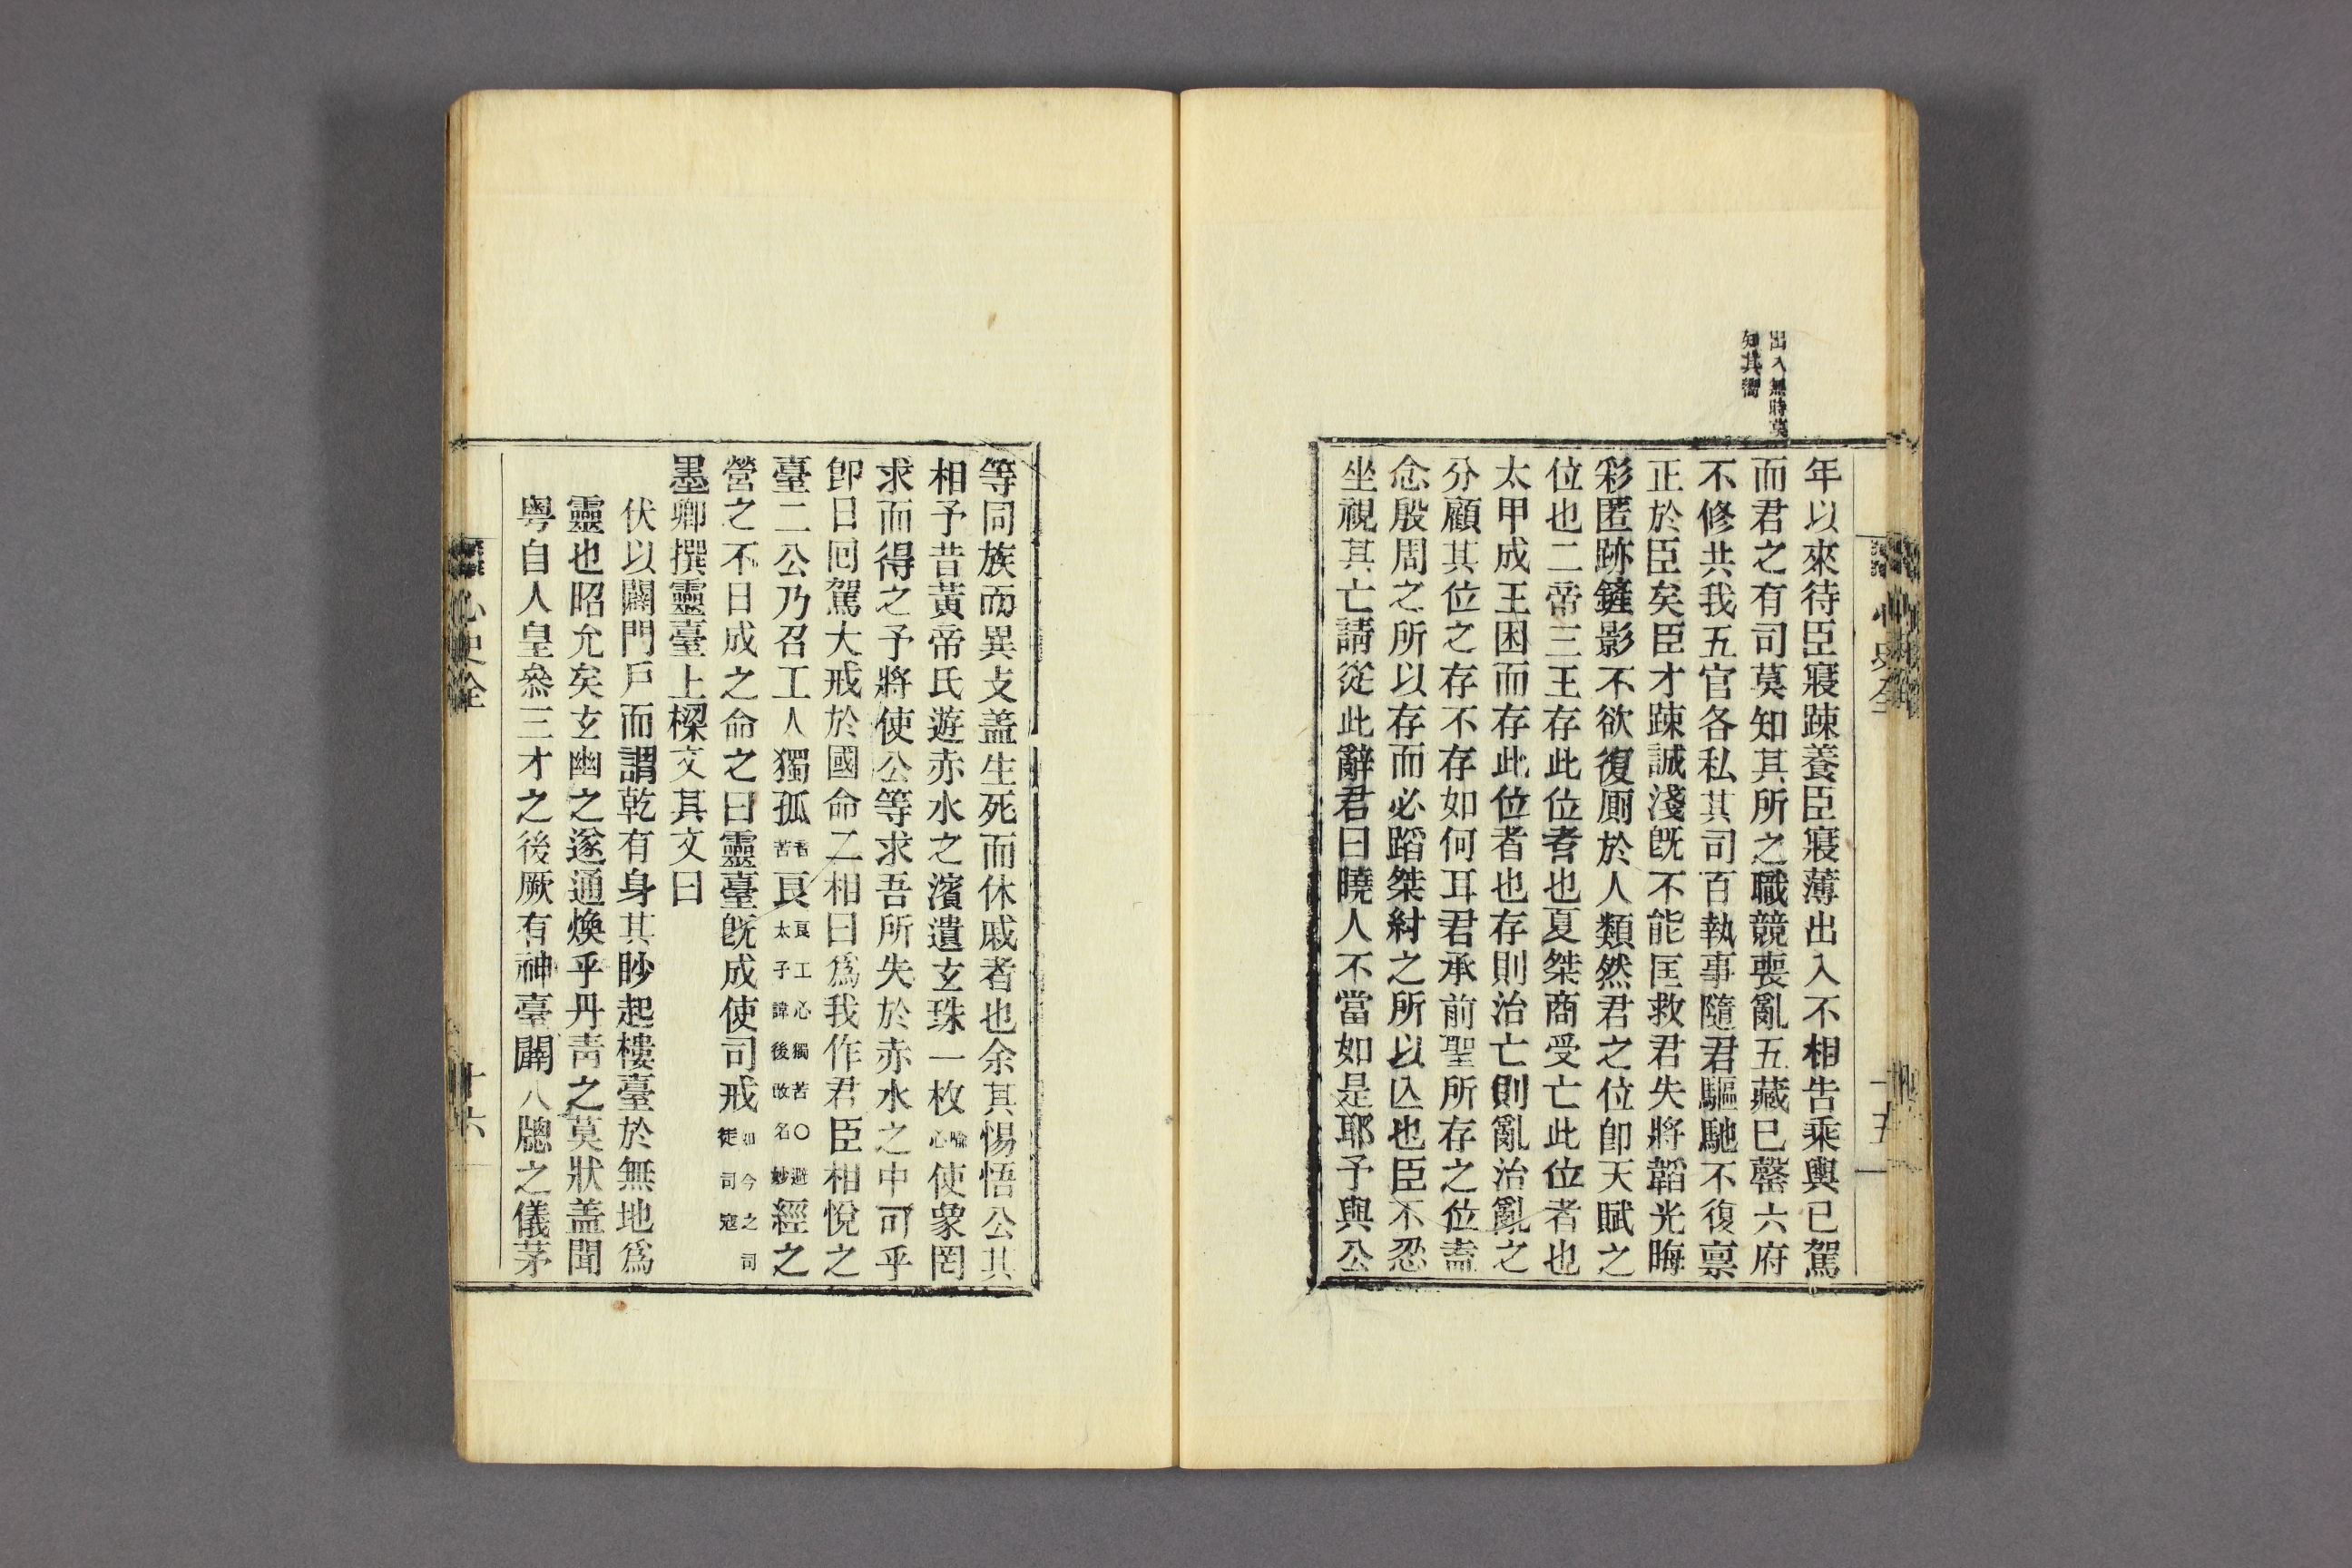 出入無時莫
知其嚮
年以來待臣寢踈養臣寢薄出入不相告乘輿已駕
而君之有司莫知其所之職競喪亂五藏已罄六府
不修共我五官各私其司百執事隨君驅馳不復禀
正於臣矣臣才踈誠淺旣不能匡救君失將韜光晦
彩匿跡鏟影不欲復厠於人類然君之位卽天賦之
位也二帝三王存此位者也夏桀商受亡此位者也
太甲成王困而存此位者也存則治亡則亂治亂之
分顧其位之存不存如何耳君承前聖所存之位盍
念殷周之所以存而必蹈桀紂之所以亾也臣不忍
坐視其亡請從此辭君曰曉人不當如是耶予與公
十五
等同族而異攴盖生死而休戚者也余其惕悟公其
相予昔黃帝氏遊赤水之濱遺玄珠一枚喩心使象罔
求而得之予將使公等求吾所失於赤水之中可乎
卽日囘駕大戒於國命二相曰爲我作君臣相悅之
臺二公乃召工人獨孤音苦良良工心獨苦〇避太子諱後改名妙經之
營之不日成之命之曰靈臺旣成使司戒如今之司徒司寇
墨卿撰靈臺上樑文其文曰
伏以闢門戶而謂乾有身其眇起樓臺於無地爲
靈也昭允矣玄幽之遂通煥乎丹靑之莫狀盖聞
粤自人皇叅三才之後厥有神臺闢八牕之儀茅
心史全
十六